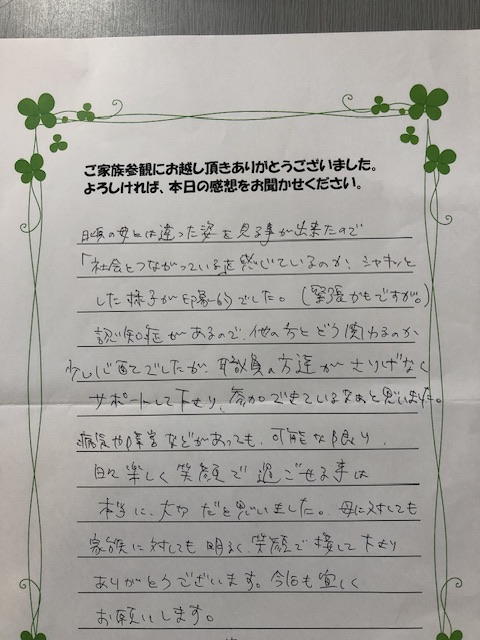 ご家族参観にお越し頂きありがとうございました。
よろしければ、本日の感想をお聞かせください。
日頃の母とは違った姿を見る事が出来たので
「社会とつながっている」を感じているのか、シャキッと
した様子が印象的でした。(緊張かもですが。)
認知症があるので、他の方とどう関わるのか
少し心配でしたが、職員の方達がさりげなく
サポートして下さり、参加できているなぁと思いました。
病気や障害などがあっても、可能な限り、
日々楽しく笑顔で過ごせる事は
本当に、大切だと思いました。母に対しても
家族に対しても明るく、笑顔で接して下さり
ありがとうございます。今後も宜しく
お願いします。